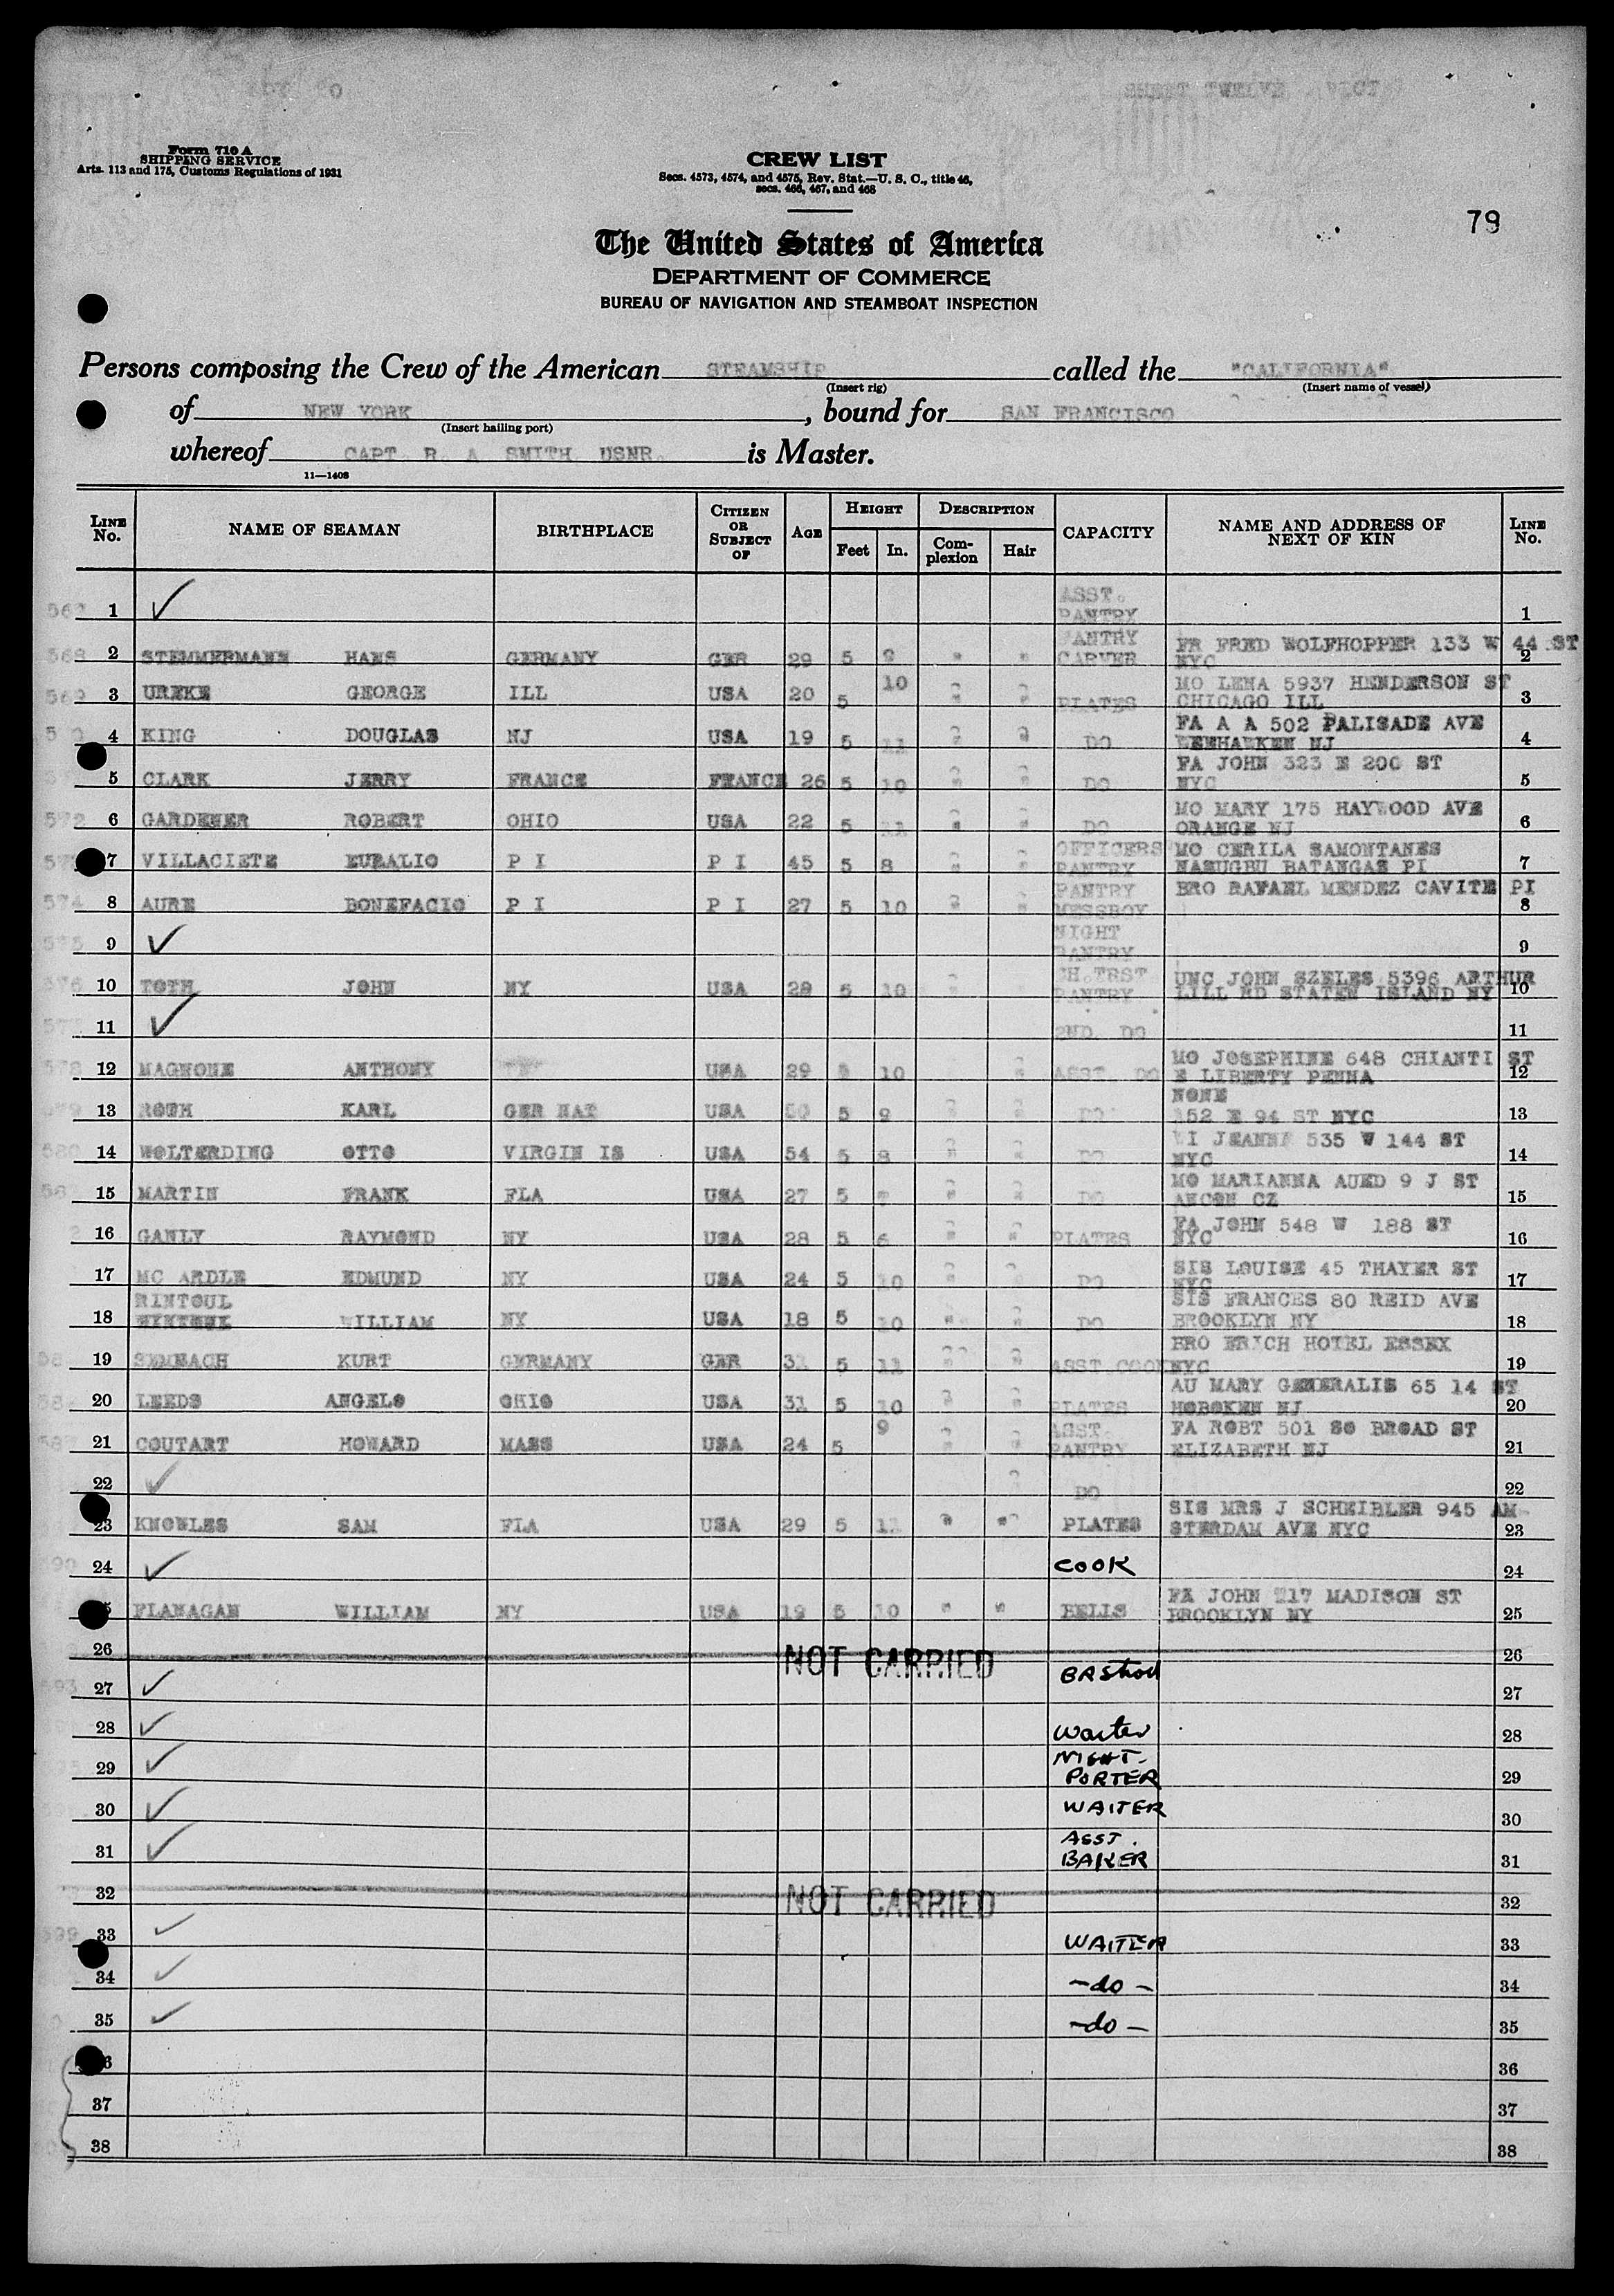 SHEET TWELVE
Form 710 A
SHIPPING SERVICE
Arts. 113 and 175, Customs Regulations of 1931
CREW LIST
Secs. 4573, 4574, and 4575, Rev. Stat.—U. S. C., title 46,
secs. 466, 467, and 468
79
The United States of America
DEPARTMENT OF COMMERCE
BUREAU OF NAVIGATION AND STEAMBOAT INSPECTION
Persons composing the Crew of the American STEAMSHIP called the "CALIFORNIA"
(Insert rig) (Insert name of vessel)
of NEW YORK, bound for SAN FRANCISCO
(Insert hailing port)
whereof CAPT. R. A SMITH USNR. is Master.
11—1408
LINE No. NAME OF SEAMAN BIRTHPLACE CITIZEN OR SUBJECT OF AGE HEIGHT Feet In. DESCRIPTION Complexion Hair CAPACITY NAME AND ADDRESS OF NEXT OF KIN LINE No.
1 ✓ ASST. PANTRY 1
568 2 STEMMERMANN HANS GERMANY GER 29 5 9 " " PANTRY CARVER FR FRED WOLFHOPPER 133 W 44 ST NYC 2
569 3 UREKE GEORGE ILL USA 20 5 10 " " PLATES MO LENA 5937 HENDERSON ST CHICAGO ILL 3
4 KING DOUGLAS NJ USA 19 5 11 " " DO FA A A 502 PALISADE AVE WEEHAWKEN NJ 4
5 CLARK JERRY FRANCE FRANCE 26 5 10 " " DO FA JOHN 323 E 200 ST NYC 5
572 6 GARDENER ROBERT OHIO USA 22 5 11 " " DO MO MARY 175 HAYWOOD AVE ORANGE NJ 6
7 VILLACIETE EURALIO P I P I 45 5 8 " " OFFICERS PANTRY MO CERILA SAMONTANES NASUGBU BATANGAS PI 7
574 8 AURE BONEFACIO P I P I 27 5 10 " " PANTRY MESSBOY BRO RAFAEL MENDEZ CAVITE PI 8
575 9 ✓ NIGHT PANTRY 9
576 10 TOTH JOHN NY USA 28 5 10 " " CH.TRST PANTRY UNC JOHN SZELES 5396 ARTHUR LILL RD STATEN ISLAND NY 10
11 ✓ 2ND DO 11
578 12 MAGNONE ANTHONY USA 29 10 " ASST. DO MO JOSEPHINE 648 CHIANTI ST E LIBERTY PENNA 12
579 13 ROTH KARL GER NAT USA 5 9 " " DO NONE 152 E 94 ST NYC 13
580 14 WOLTERDING OTTO VIRGIN IS USA 54 5 8 " " DO WI JEANNE 535 W 144 ST NYC 14
15 MARTIN FRANK FLA USA 27 5 " " DO MO MARIANNA AUED 9 J ST ANCON CZ 15
16 GANLY RAYMOND NY USA 28 5 6 " " PLATES FA JOHN 548 W 188 ST NYC 16
17 MC ARDLE EDMUND NY USA 24 5 10 " " DO SIS LOUISE 45 THAYER ST NYC 17
18 RINTOUL WILLIAM NY USA 18 5 10 " " DO SIS FRANCES 80 REID AVE BROOKLYN NY 18
19 KURT GERMANY GER 5 11 " " ASST COOK BRO ERICH HOTEL ESSEX NYC 19
20 LEEDS ANGELO OHIO USA 31 5 10 " " PLATES AU MARY GENERALIS 65 14 ST HOBOKEN NJ 20
21 COUTART HOWARD MASS USA 24 5 9 " " ASST. PANTRY FA ROBT 501 SO BROAD ST ELIZABETH NJ 21
22 ✓ " DO 22
23 KNOWLES SAM FLA USA 29 5 11 " " PLATES SIS MRS J SCHEIBLER 945 AMSTERDAM AVE NYC 23
24 ✓ COOK 24
FLANAGAN WILLIAM NY USA 19 5 10 " " BELLS FA JOHN 217 MADISON ST BROOKLYN NY 25
26 NOT CARRIED 26
27 ✓ 27
28 ✓ Waiter 28
29 ✓ NIGHT PORTER 29
30 ✓ WAITER 30
31 ✓ ASST. BAKER 31
32 NOT CARRIED 32
33 ✓ WAITER 33
34 ✓ -do- 34
35 ✓ -do- 35
36
37 37
38 38